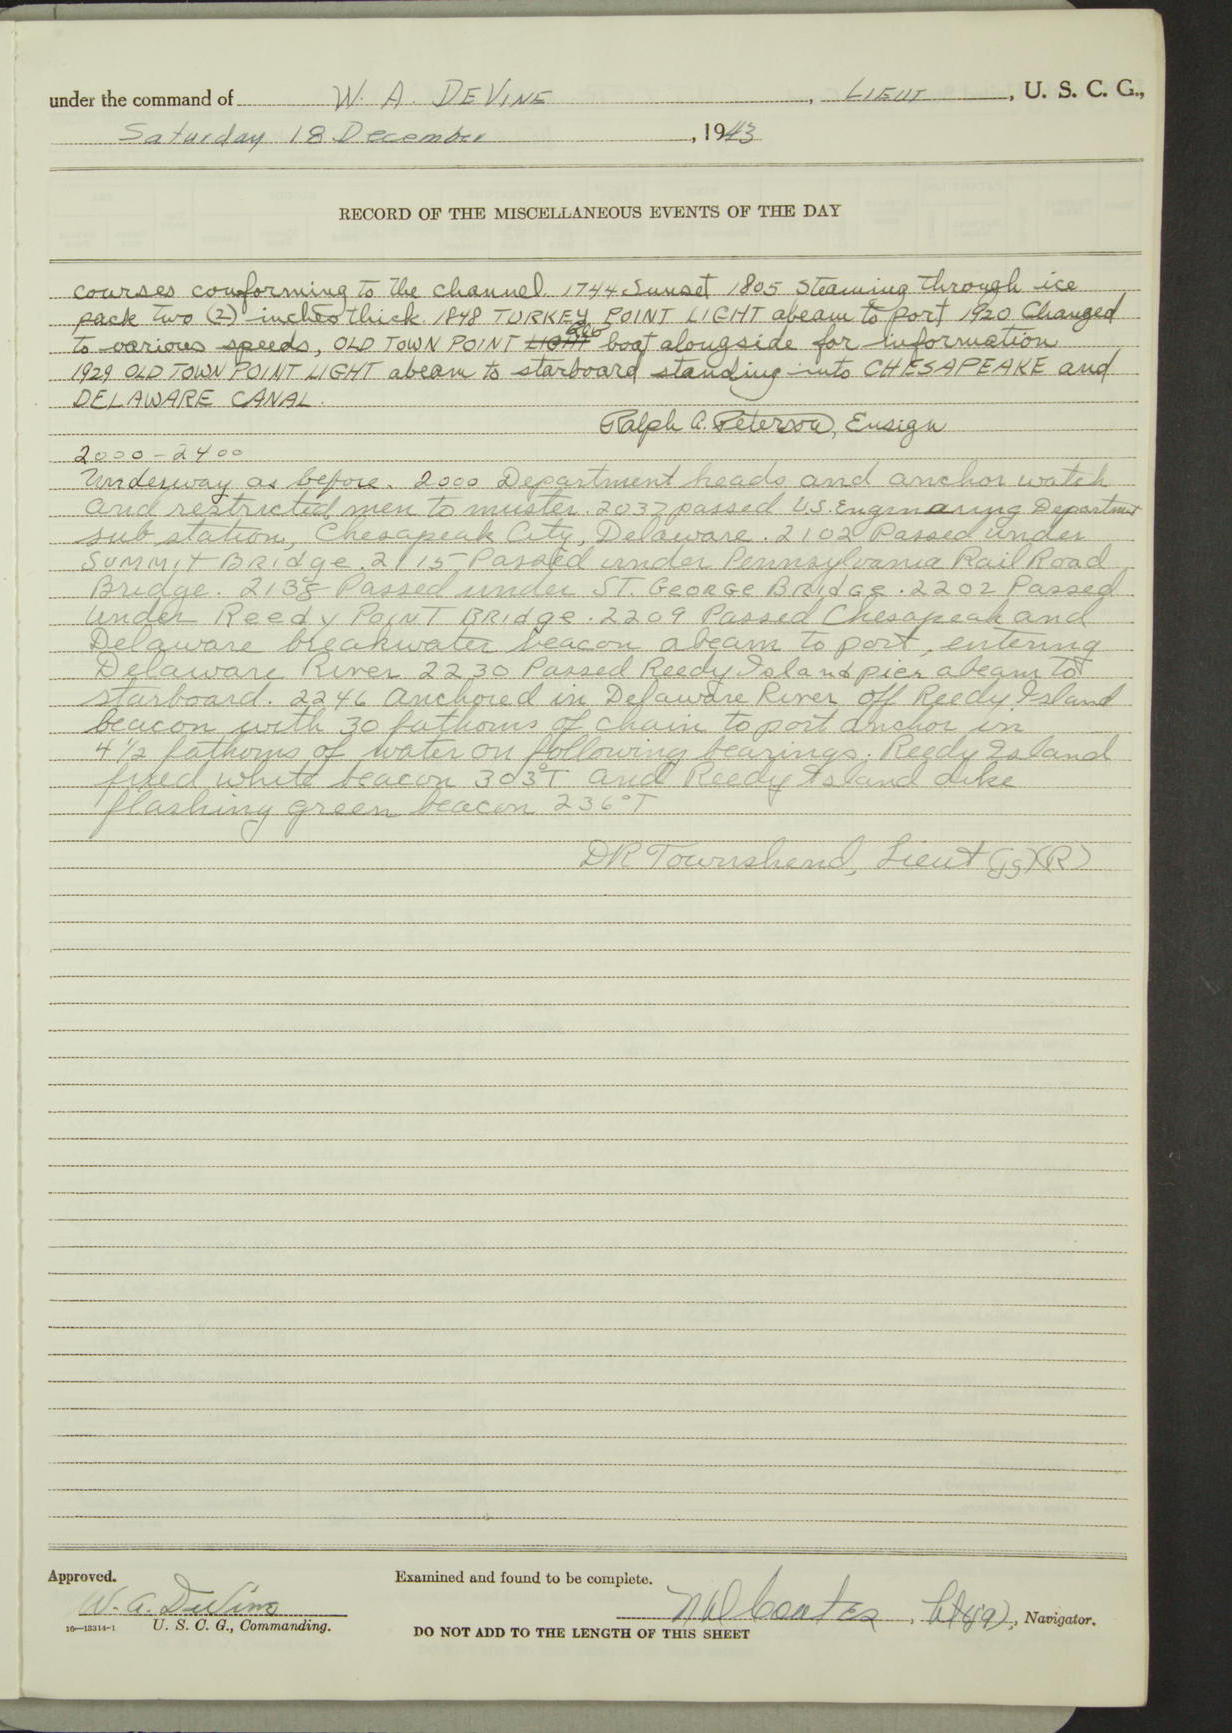 under the command of W. A. DeVine, Lieut, U. S. C. G.,
Saturday 18 December, 1943
RECORD OF THE MISCELLANEOUS EVENTS OF THE DAY
courses conforming to the channel. 1744 Sunset 1805 Steaming through ice
pack two (2) inches thick. 1848 TURKEY POINT LIGHT abeam to port 1920 Changed
to various speeds, OLD TOWN POINT LIGHT boat alongside for information
1929 OLD TOWN POINT LIGHT abeam to starboard standing into CHESAPEAKE and
DELAWARE CANAL.
Ralph A. Peterson, Ensign
2000-2400
Underway as before. 2000 Department heads and anchor watch
and restricted men to muster. 2037 passed U.S. Enginearing Department
sub station, Chesapeak City, Delaware. 2102 Passed under
Summit Bridge. 2115 Passed under Pennsylvania Rail Road
Bridge. 2138 Passed under ST. GEORGE BRIdgE. 2202 Passed
under Reedy Point Bridge. 2209 Passed Chesapeak and
Delaware breakwater beacon abeam to port, entering
Delaware River 2230 Passed Reedy Island pier abeam to
starboard. 2246 Anchored in Delaware River off Reedy Island
beacon with 30 fathoms of chain to port anchor in
4 1/2 fathoms of water on following bearings. Reedy Island
fixed white beacon 303°T and Reedy Island dike
flashing green beacon 236°T
DR Townshend, Lieut (jg)(R)
Approved.
Examined and found to be complete.
W. A. DeVine
, Lt(jg), Navigator.
16—13314-1 U. S. C. G., Commanding.
DO NOT ADD TO THE LENGTH OF THIS SHEET